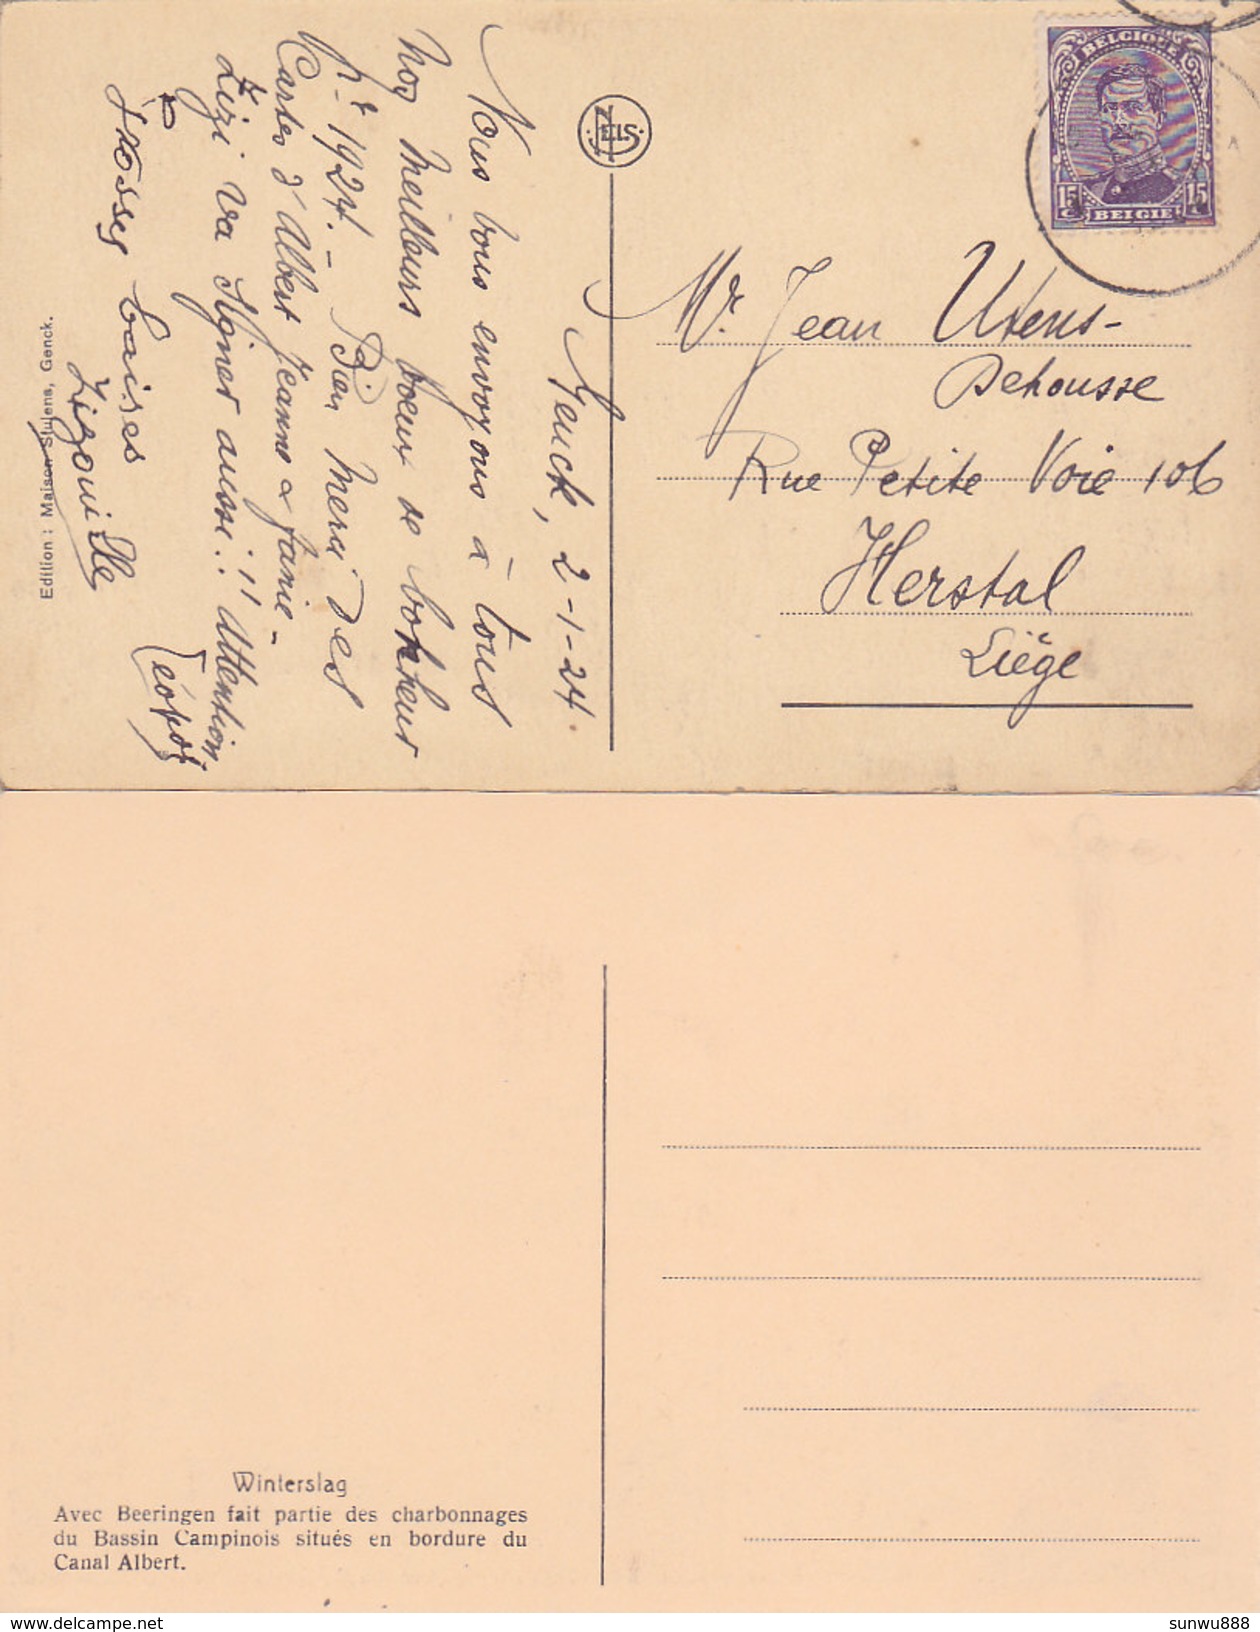 BELGIQUE
15 C
15 C
BELGIE
NELS
Genck, 2-1-24.
Nous vous envoyons à tous
nos meilleurs voeux de bonheur
pr 1924. - Bien merci des
Cartes d'Albert Jeanne & Fanie -
Zizi va signer aussi!! Attention,
Léopol
grosses baises
Zizouille
Edition : Maison Stulens, Genck.
Mr. Jean Utens-
Dehousse
Rue Petite Voie 106
Herstal
Liège
Winterslag
Avec Beeringen fait partie des charbonnages
du Bassin Campinois situés en bordure du
Canal Albert.
delcampe.net
sunwu888